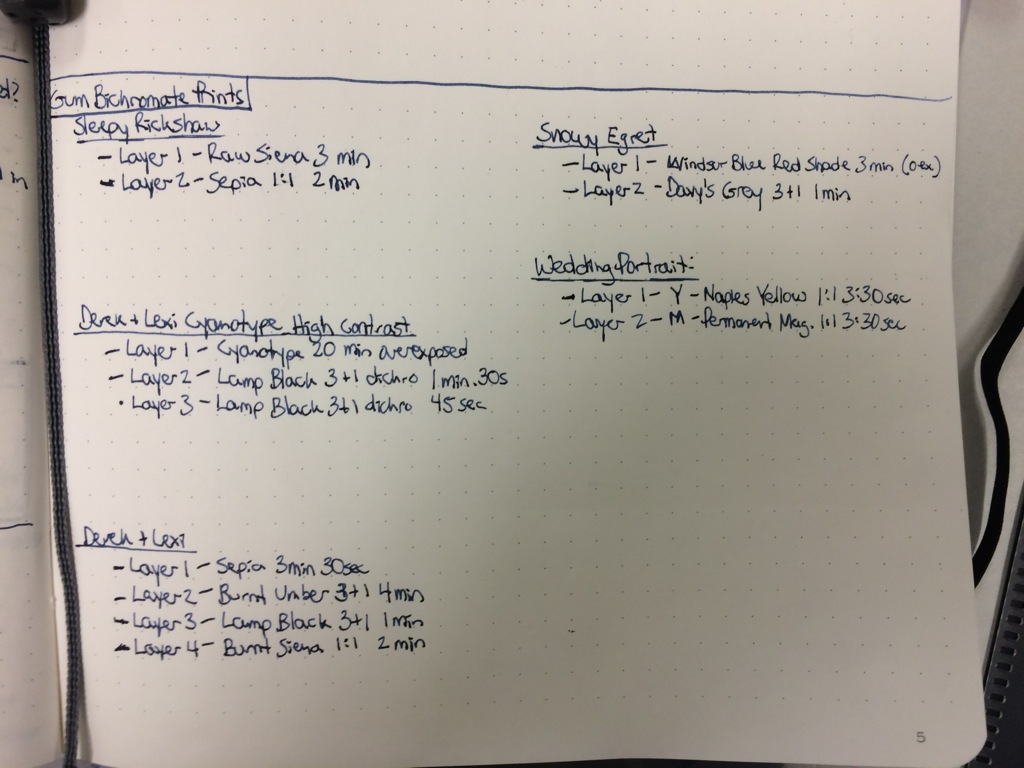 ed?
m
Gum Bichromate Prints
Sleepy Rickshaw
- Layer 1 - Raw Siena 3 min
- Layer 2 - Sepia 1:1 2 min
Derek + Lexi Cyanotype High Contrast
- Layer 1 - Cyanotype 20 min overexposed
- Layer 2 - Lamp Black 3+1 dichro 1 min. 30s
• Layer 3 - Lamp Black 3+1 dichro 45 sec
Derek + Lexi
- Layer 1 - Sepia 3min 30sec
- Layer 2 - Burnt Umber 3+1 4min
- Layer 3 - Lamp Black 3+1 1min
- Layer 4 - Burnt Siena 1:1 2 min
Snowy Egret
- Layer 1 - Windsor Blue Red Shade 3 min (oex)
- Layer 2 - Davy's Grey 3+1 1min
Wedding Portrait:
- Layer 1 - Y - Naples Yellow 1:1 3:30sec
- Layer 2 - M - Permanent Mag. 1:1 3:30sec
5